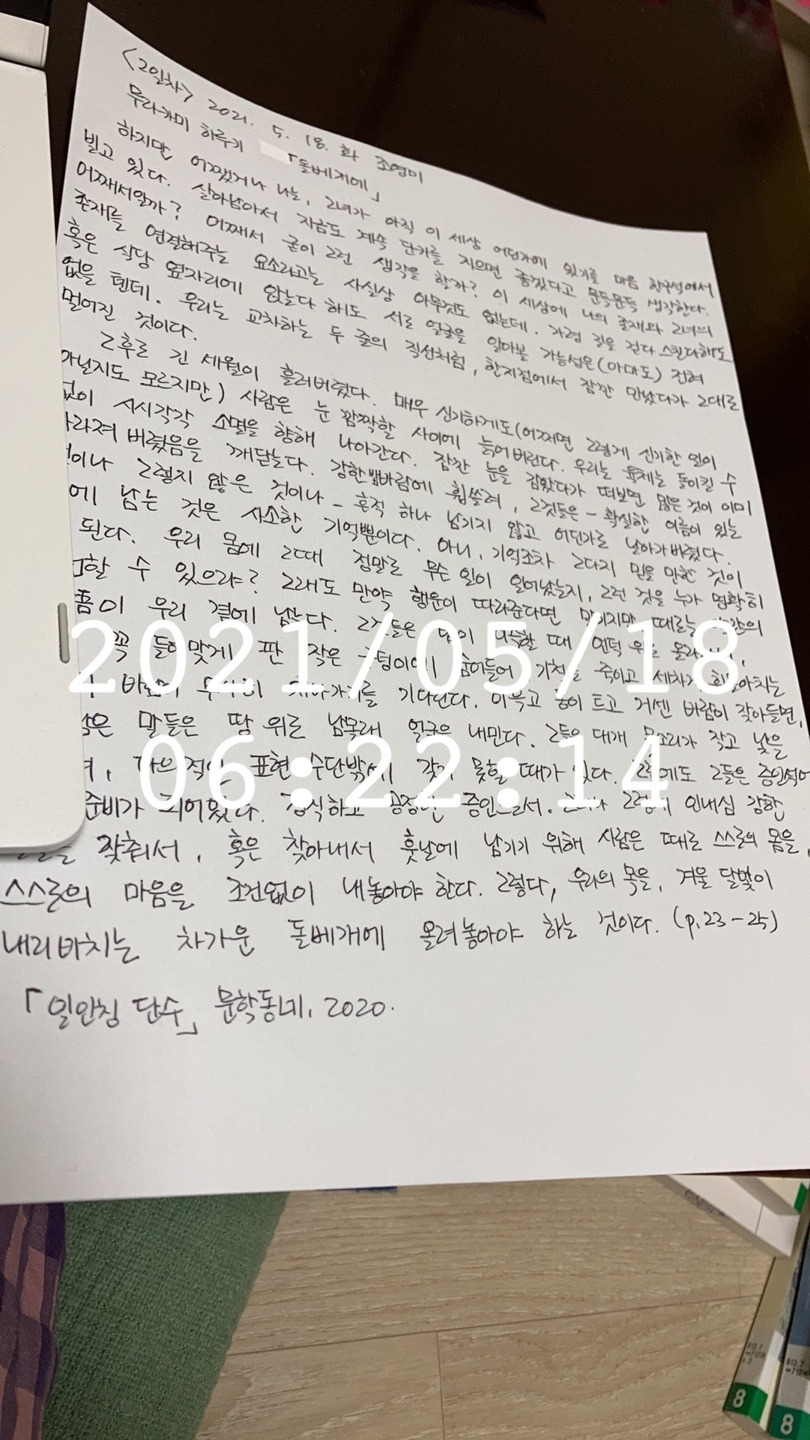 <2일차> 2021. 5. 18. 화 조영미
무라카미 하루키 「돌베개에」
하지만 어쨌거나 나는, 그녀가 아직 이 세상 어딘가에 있기를 마음 한구석에서
빌고 있다. 살아남아서 지금도 계속 단가를 지으면 좋겠다고 문득문득 생각한다.
어째서일까? 어째서 굳이 그런 생각을 할까? 이 세상에 나의 존재와 그녀의
존재를 연결해주는 요소라고는 사실상 아무것도 없는데. 가령 길을 걷다 스친다해도
혹은 식당 옆자리에 앉는다 해도 서로 얼굴을 알아볼 가능성은 (아마도) 전혀
없을 텐데. 우리는 교차하는 두 줄의 직선처럼, 한지점에서 잠깐 만났다가 그대로
멀어진 것이다.
그후로 긴 세월이 흘러버렸다. 매우 신기하게도 (어쩌면 그렇게 신기한 일이
아닐지도 모르지만) 사람은 눈 깜짝할 사이에 늙어버린다. 우리는 육체는 돌이킬 수
없이 시시각각 소멸을 향해 나아간다. 잠깐 눈을 감았다가 떠보면 많은 것이 이미
사라져 버렸음을 깨닫는다. 강한 밤바람에 휩쓸려, 그것들은 - 확실한 이름이 있는
것이나 그렇지 않은 것이나 - 흔적 하나 남기지 않고 어딘가로 날아가버렸다.
에 남는 것은 사소한 기억뿐이다. 아니, 기억조차 그다지 믿을 만한 것이
된다. 우리 몸에 그때 정말로 무슨 일이 일어났는지, 그런 것을 누가 명확히
할 수 있으랴? 그래도 만약 행운이 따라준다면 말이지만 때로는
우리 곁에 남는다. 그것들은 밤이 이슥할 때 언덕 위로
꼭 들어맞게 판 작은 구덩이에 숨어들어 기척을 죽이고 세차게 휘몰아치는
바람이 무사히 지나가기를 기다린다. 이윽고 동이 트고 거센 바람이 잦아들면,
남은 말들은 땅 위로 남몰래 얼굴을 내민다. 그들은 대개 목소리가 작고 낯을
표현 수단밖에 갖지 못할 때가 있다. 그럼에도 그들은 증인석에
준비가 되어있다. 정직하고 공정한 증인으로서. 그러나 그렇게 인내심 강한
갖춰서, 혹은 찾아내서 훗날에 남기기 위해 사람은 때로 스스로의 몸을,
스스로의 마음을 조건없이 내놓아야 한다. 그렇다, 우리의 목을, 겨울 달빛이
내리비치는 차가운 돌베개에 올려놓아야 하는 것이다. (p.23-25)
「일인칭 단수」 문학동네, 2020.
2021/05/18
06:22:14
8
8